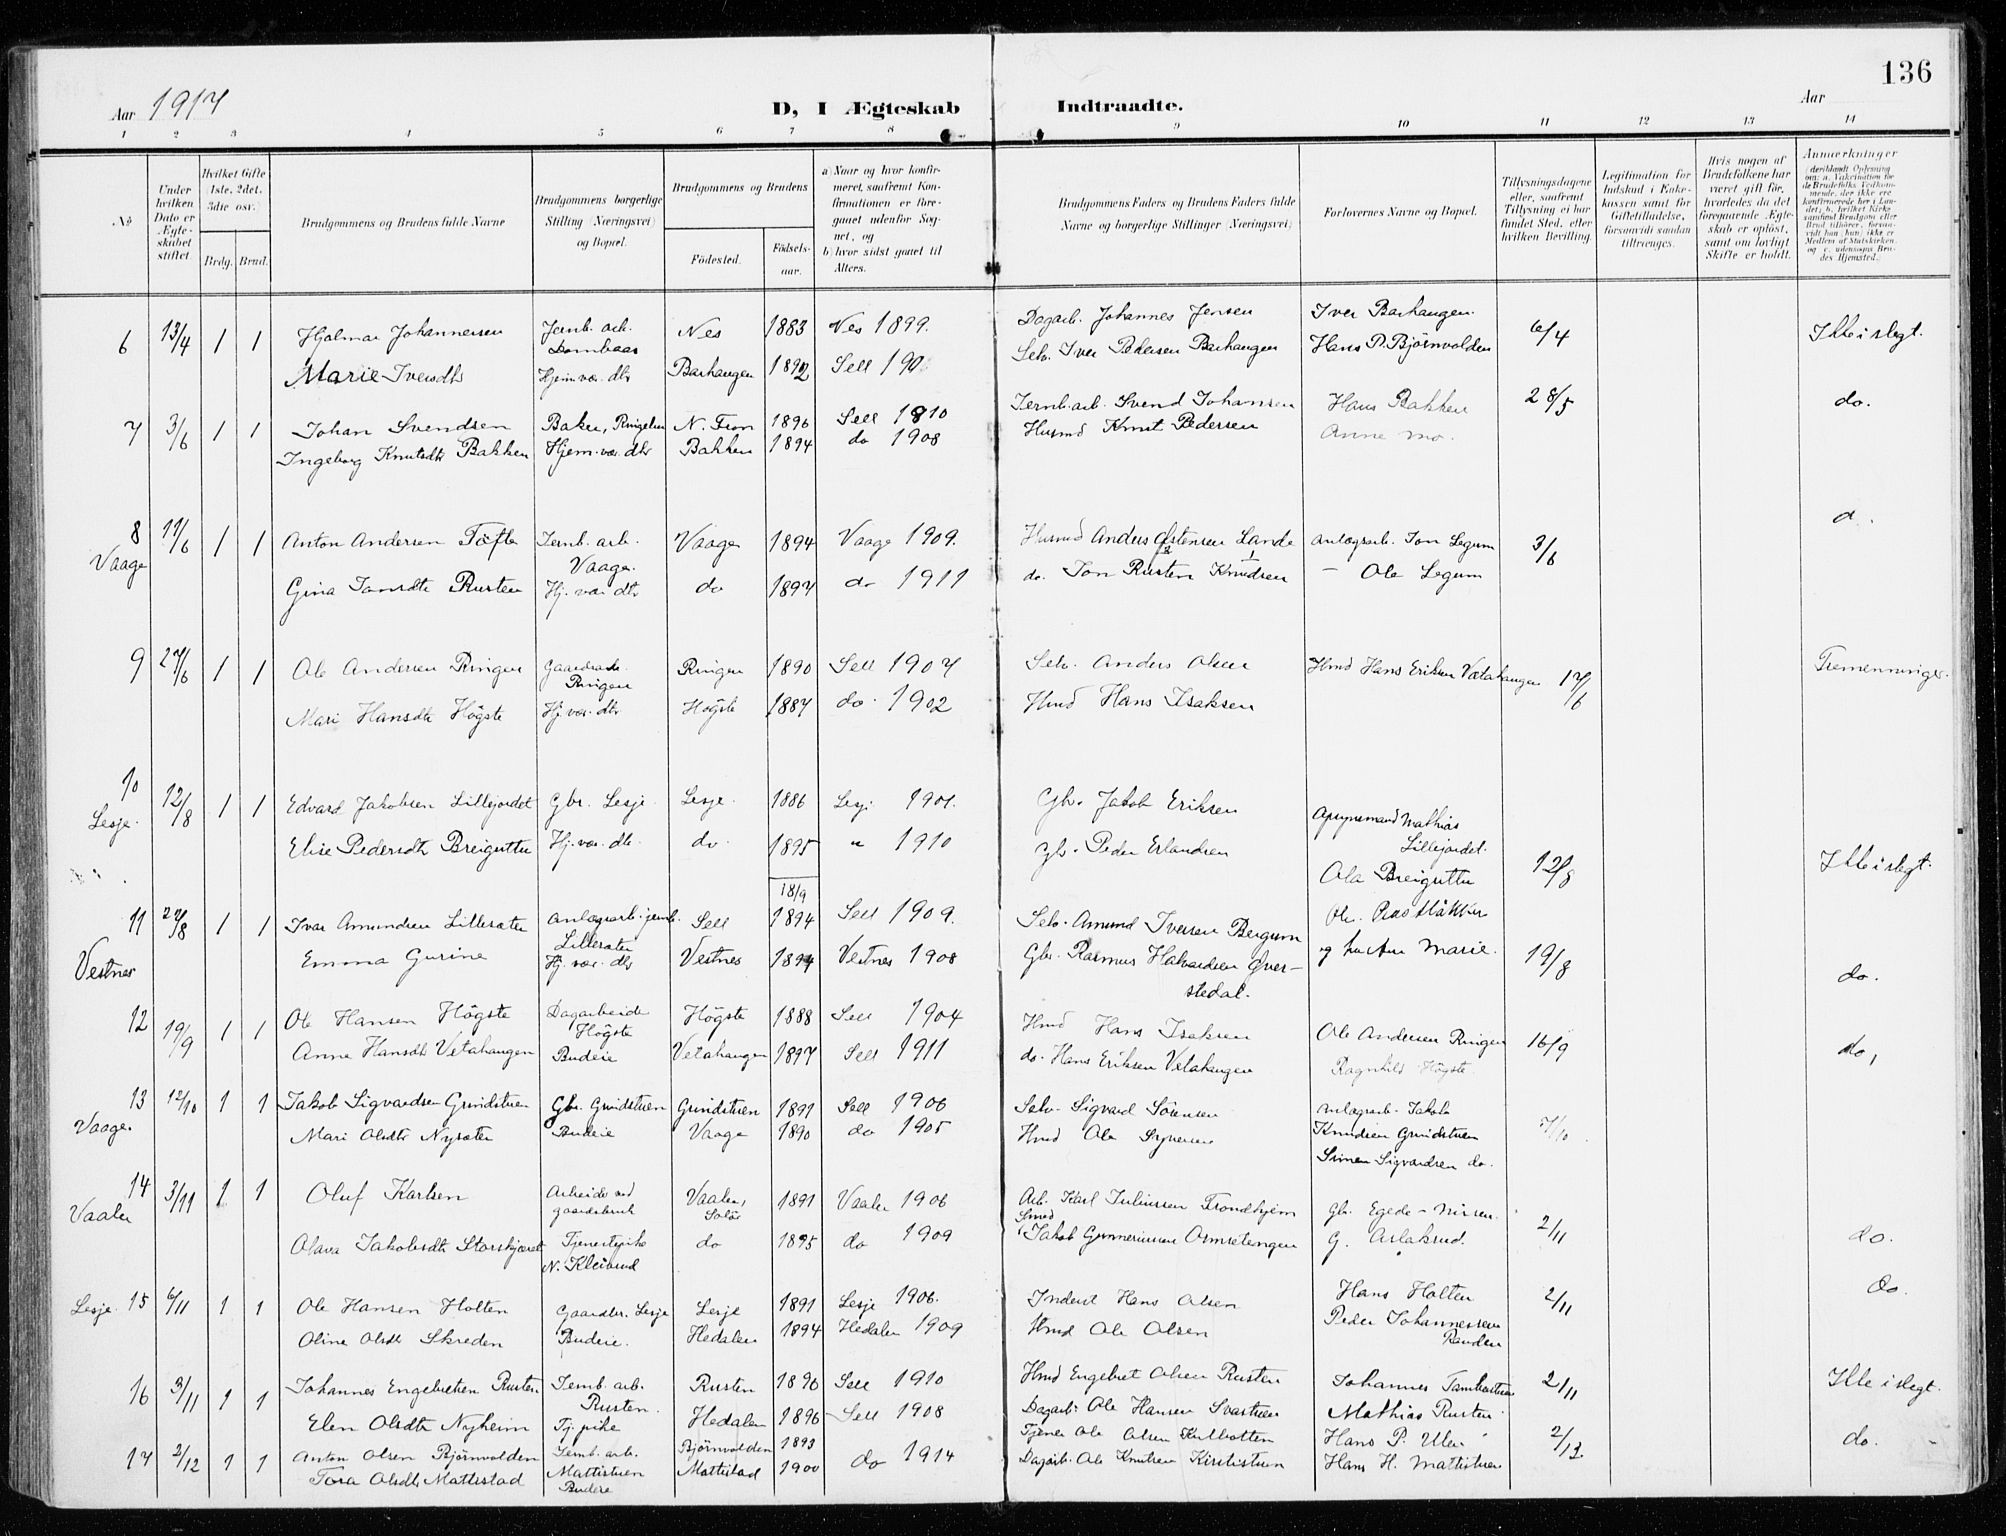 136
Aar 1917
D, I Ægteskab Indtraadte.
Aar
1 2 3 4 5 6 7 8 9 10 11 12 13 14
No
Under hvilken Dato er Ægteskabet stiftet.
Hvilket Gifte 1ste, 2det, 3die osv.
Brdg. Brud.
Brudgommens og Brudens fulde Navne
Brudgommens borgerlige Stilling (Næringsvei) og Bopæl.
Brudgommens og Brudens
Födested.
Födselsaar.
a) Naar og hvor konfirmeret, saafremt Konfirmationen er foregaaet udenfor Sognet, og
b) hvor sidst gaaet til Alters.
Brudgommens Faders og Brudens Faders fulde Navne og borgerlige Stillinger (Næringsvei)
Forlovernes Navne og Bopæl.
Tillysningsdagene eller, saafremt Tillysning ei har fundet Sted, efter hvilken Bevilling.
Legitimation for Indskud i Enkekassen samt for Giftetilladelse, forsaavidt saadan tiltrænges.
Hvis nogen af Brudefolkene har været gift för, hvorledes da det foregaaende Ægteskab er oplöst, samt om lovligt Skifte er holdt.
Anmærkninger
6 13/4 1 1 Hjalmar Johannesen Jernb. arb. Dombaas Nes 1883 Nes 1899. Dagarb. Johannes Jensen Iver Barhaugen. 6/4 Ikke i slegt.
Marie Iversdtr Hjem.vær. dtr Barhaugen 1892 Sell Selv. Iver Pedersen Barhaugen Hans P. Bjørnvolden
7 3/6 1 1 Johan Svendsen N. Fron 1896 Sell 1910 Jernb. arb. Svend Johansen Hans Bakken 28/5 do.
Ingeborg Knutsdtr Bakken Hjem.vær. dtr Bakken 1894 do 1908 Husmd Knut Pedersen Anne Mo.
8 Vaage 17/6 1 1 Anton Andersen Tofte Jernb. arb. Vaage. Vaage 1894 Vaage 1909. Husmd Anders Østensen Lande Anlægsarb. Jon Legum 3/6
Gina Jonsdtr Rusten Hj. vær dtr do 1897 do 1911 do. Jon Knudsen Rusten — Ole Legum
9 27/6 1 1 Ole Andersen Ringen Ringen Ringen 1890 Sell 1907 Selv. Anders Olsen Hmd Hans Eriksen Vetahaugen 17/6 Tremenninger.
Mari Hansdtr Högste Hj.vær. dtr Högste 1887 do. 1902 Hmd Hans Isaksen
10 Lesje. 12/8 1 1 Edvard Jakobsen Lillejordet Gbr. Lesje Lesje. 1886 Lesj. 1901. Gbr. Jakob Eriksen Opsynsmand Mathias Lillejordet. 12/8 Ikke i slegt.
Elise Pedersdtr Breigutu Hj. vær. dtr do. 1895 " 1910 Gbr. Peder Erlandsen Ola Breigutu
11 Vestnes 27/8 1 1 Ivar Amundsen Lillesæter Anlægsarb. jernb. Lillesæter Sell 18/9 1894 Sell 1909. Selv. Amund Iversen Bergum 19/8 do.
Emma Gurine Hj. vær. dtr Vestnes 1894 Vestnes 1908 Gbr. Rasmus Halvardsen Øverstedal. og fru Ane Marie.
12 19/9 1 1 Ole Hansen Högste Dagarbeide Högste Högste 1888 Sell 1904 Hmd Hans Isaksen Ole Andersen Ringen 16/9 do,
Anne Hansdtr Vetahaugen Budeie Vetahaugen 1897 Sell 1911 do. Hans Eriksen Vetahaugen Ragnhild Högste
13 Vaage. 12/10 1 1 Jakob Sigvardsen Grindstuen Gbr. Grindstuen Grindstuen 1891 Sell 1906 Selv. Sigvard Sörensen Anlægsarb. Jakob Knudsen Grindstuen 7/10
Mari Olsdtr Nysæter Budeie Vaage 1890 do 1905 Hmd Ole Simen Sigvardsen do.
14 Vaaler 3/11 1 1 Oluf Karlsen Arbeide ved gaardsbruk Vaaler, Solör 1891 Vaaler 1906 Arb. Karl Juliussen Trondhjem Gbr. Egede-Nissen. 2/11
Olava Jakobsdtr Storskjæret Tjenestepike N. Kleivrud do 1895 do 1909 Smed Jakob Gunneriussen Ormsetengen G. Aslaksrud. do.
15 Lesje. 6/11 1 1 Ole Hansen Holten Gaardbr. Lesje Lesje 1891 Lesje 1906. Inderst Hans Olsen Hans Holten 2/11 do.
Oline Olsdtr Skreden Budeie. Hedalen 1894 Hedalen 1909 Hmd Ole Olsen Peder Johannessen Randen
16 3/11 1 1 Johannes Engebretsen Rusten Jernb. arb. Rusten. Rusten 1890 Sell 1910 Hmd Engebret Olsen Rusten Johannes 2/11 Ikke i slegt.
Elen Olsdtr Nyheim Tj. pike Hedalen 1896 Sell 1908 Dagarb. Ole Hansen Svastuen Mathias Rusten.
17 2/12 1 1 Anton Olsen Bjørnvolden Jernb. arb. Mattistuen Bjørnvolden 1893 do 1914 Tjener Ole Olsen Kulbotten Hans P. Ulen 2/12 do.
Tora Olsdtr Mattistad Budeie Mattistad 1900 Dagarb. Ole Knutsen Kirstistuen Hans H. Mattistuen